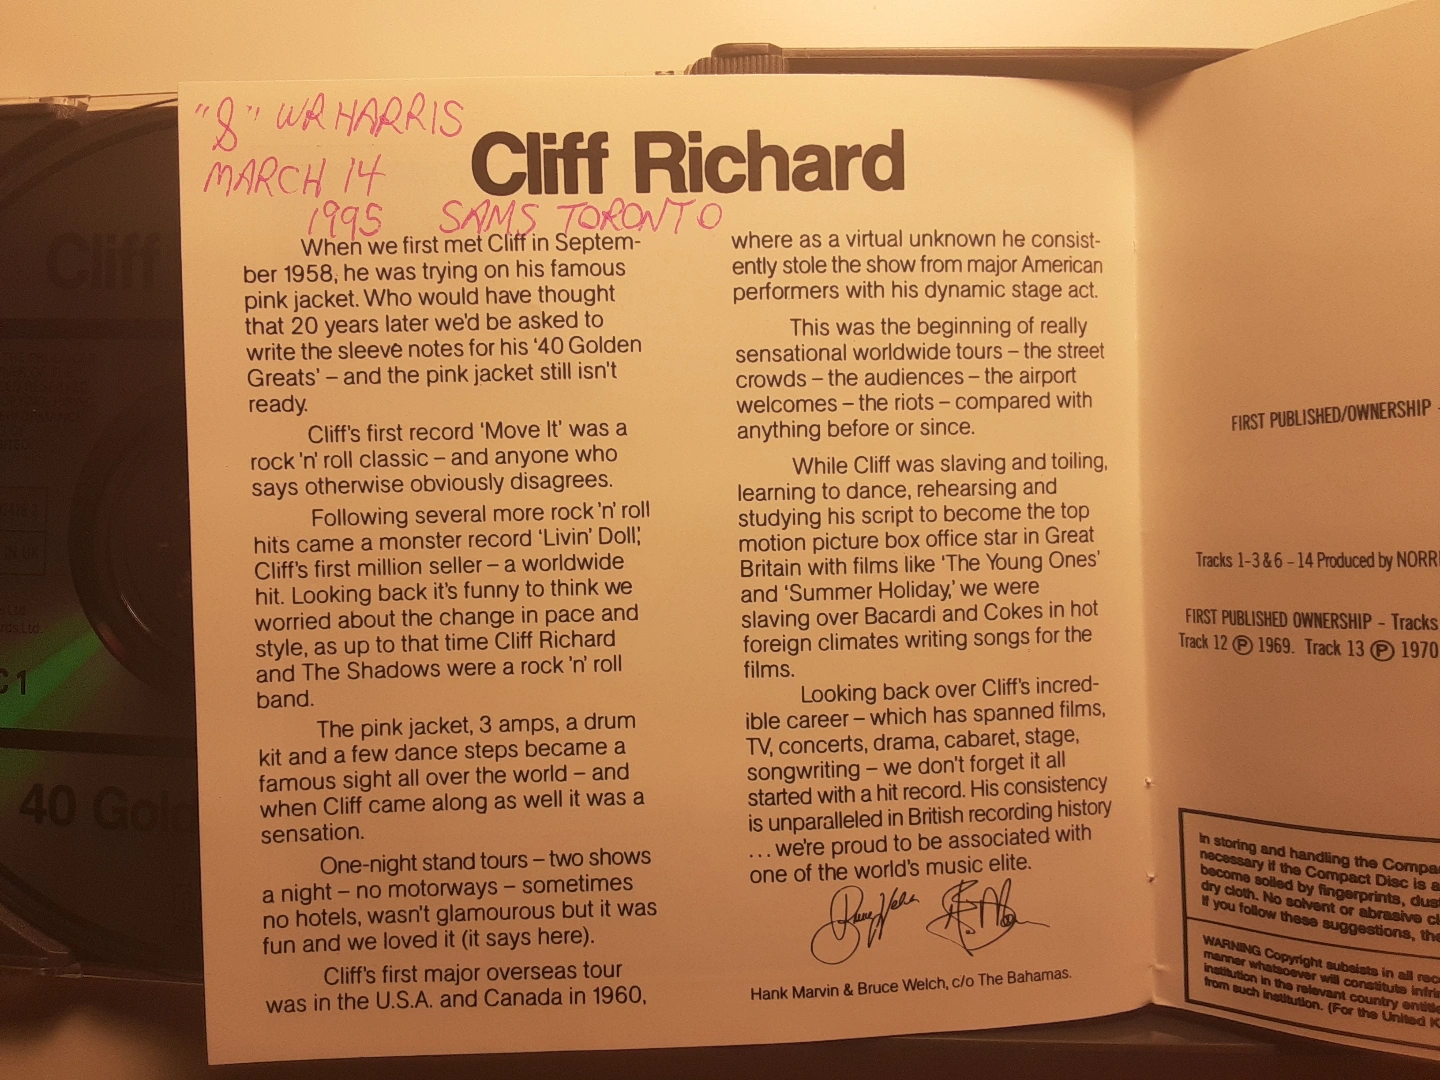 "S" WR HARRIS
MARCH 14
1995 SAMS TORONTO
Cliff Richard
When we first met Cliff in Septem-
ber 1958, he was trying on his famous
pink jacket. Who would have thought
that 20 years later we'd be asked to
write the sleeve notes for his '40 Golden
Greats' – and the pink jacket still isn't
ready.
Cliff's first record 'Move It' was a
rock 'n' roll classic – and anyone who
says otherwise obviously disagrees.
Following several more rock 'n' roll
hits came a monster record 'Livin' Doll,'
Cliff's first million seller – a worldwide
hit. Looking back it's funny to think we
worried about the change in pace and
style, as up to that time Cliff Richard
and The Shadows were a rock 'n' roll
band.
The pink jacket, 3 amps, a drum
kit and a few dance steps became a
famous sight all over the world – and
when Cliff came along as well it was a
sensation.
One-night stand tours – two shows
a night – no motorways – sometimes
no hotels, wasn't glamourous but it was
fun and we loved it (it says here).
Cliff's first major overseas tour
was in the U.S.A. and Canada in 1960,
where as a virtual unknown he consist-
ently stole the show from major American
performers with his dynamic stage act.
This was the beginning of really
sensational worldwide tours – the street
crowds – the audiences – the airport
welcomes – the riots – compared with
anything before or since.
While Cliff was slaving and toiling,
learning to dance, rehearsing and
studying his script to become the top
motion picture box office star in Great
Britain with films like 'The Young Ones'
and 'Summer Holiday,' we were
slaving over Bacardi and Cokes in hot
foreign climates writing songs for the
films.
Looking back over Cliff's incred-
ible career – which has spanned films,
TV, concerts, drama, cabaret, stage,
songwriting – we don't forget it all
started with a hit record. His consistency
is unparalleled in British recording history
... we're proud to be associated with
one of the world's music elite.
Hank Marvin & Bruce Welch, c/o The Bahamas.
FIRST PUBLISHED/OWNERSHIP –
Tracks 1-3 & 6 – 14 Produced by NORRI
FIRST PUBLISHED OWNERSHIP – Tracks
Track 12 Ⓟ 1969. Track 13 Ⓟ 1970
In storing and handling the Compa
necessary if the Compact Disc is a
become soiled by fingerprints, dus
dry cloth. No solvent or abrasive cl
If you follow these suggestions, the
WARNING Copyright subsists in all rec
manner whatsoever will constitute infri
institution in the relevant country entitle
from such institution. (For the United K
Cliff
C 1
40 Gold